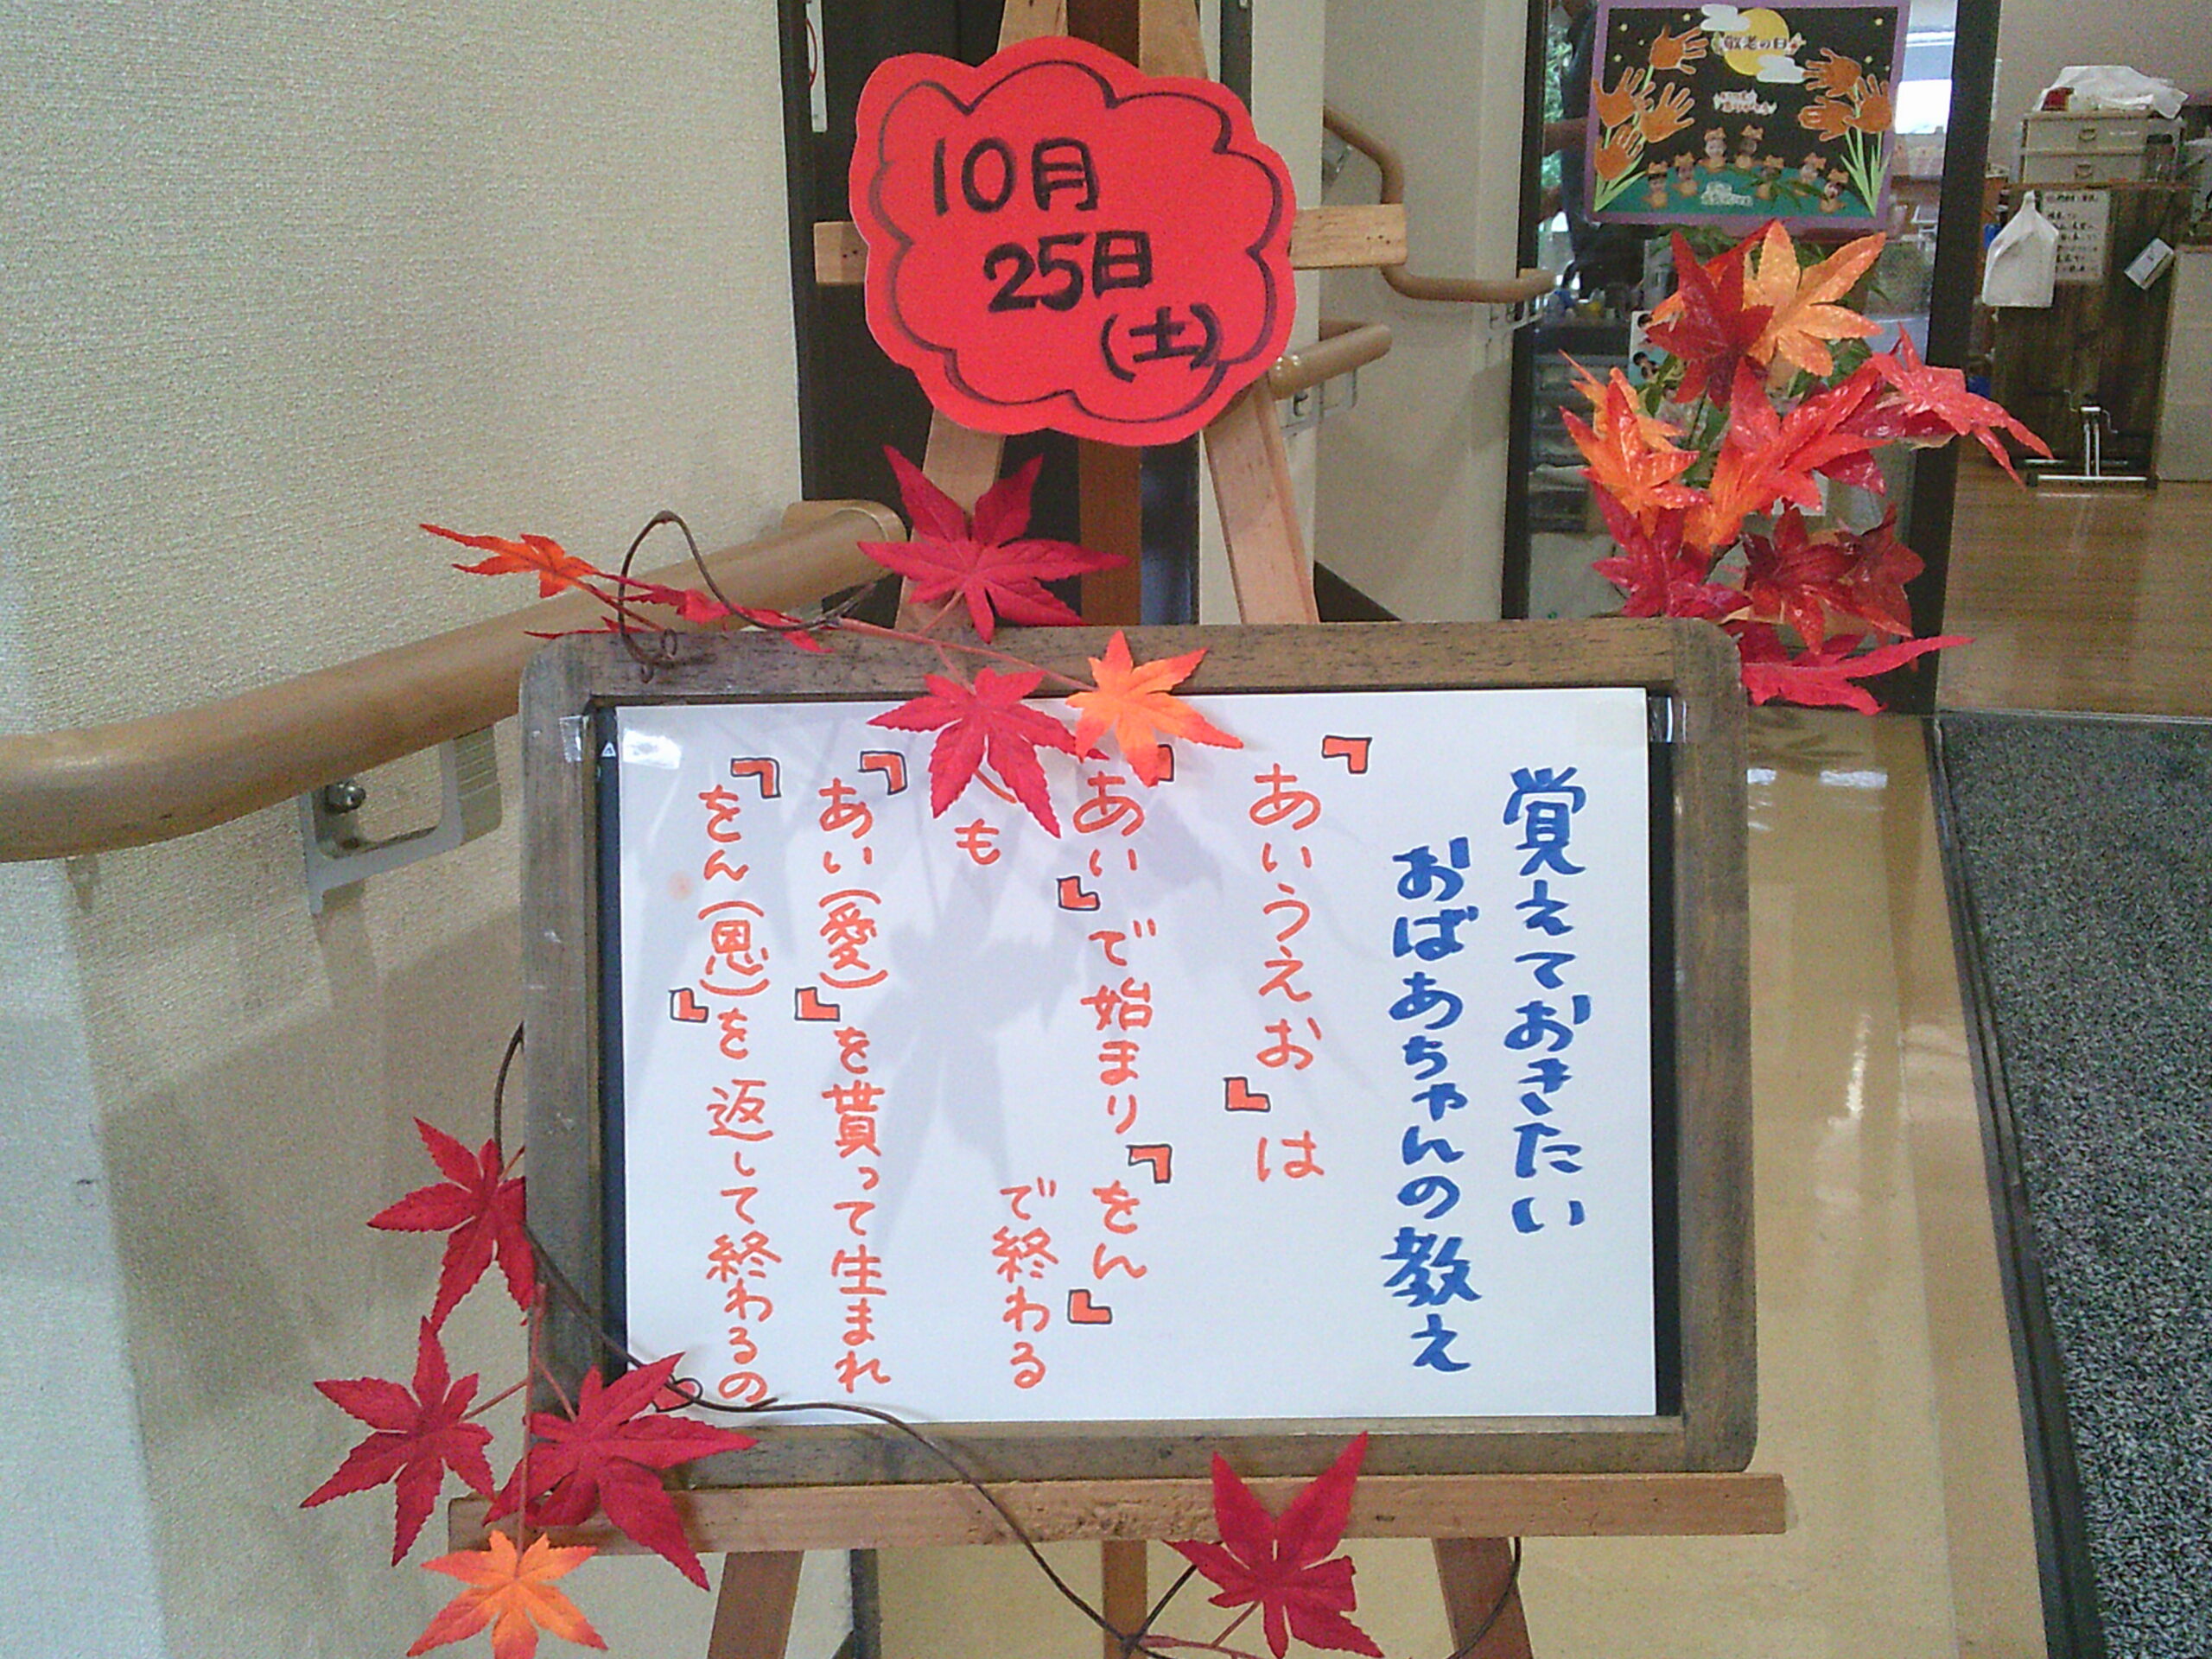 10月
25日
(土)
覚えておきたい
おばあちゃんの教え
『あいうえお』は
『あい』で始まり『をん』
で終わる
も
『あい(愛)』を貰って生まれ
『をん(恩)』を返して終わるの
敬老の日